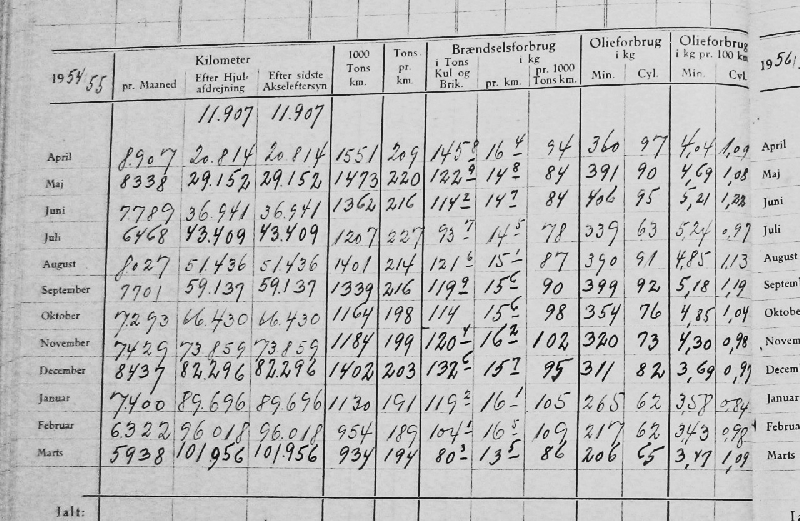 1954/55 Kilometer 1000 Tons km. Tons pr. km. Brændselsforbrug Olieforbrug i kg Olieforbrug i kg pr. 100 km 1956/
pr. Maaned Efter Hjul-afdrejning Efter sidste Akseleftersyn i Tons Kul og Brik. i kg pr. km. pr. 1000 Tons km. Min. Cyl. Min. Cyl.
11.907 11.907
April 8907 20.814 20.814 1551 209 145 8 16 4 94 360 97 4,04 1,09 April
Maj 8338 29.152 29.152 1473 220 122 9 14 8 84 391 90 4,69 1,08 Maj
Juni 7.789 36.941 36.941 1362 216 114 2 14 7 84 406 95 5,21 1,23 Juni
Juli 6468 43.409 43.409 1207 227 93 7 14 5 78 339 63 5,24 0,97 Juli
August 8027 51.436 51.436 1401 214 121 6 15 1 87 390 91 4,85 1,13 August
September 7701 59.137 59.137 1339 216 119 9 15 6 90 399 92 5,18 1,19 Septem
Oktober 7.293 66.430 66.430 1164 198 114 15 6 98 354 76 4,85 1,04 Oktobe
November 7429 73.859 73.859 1184 199 120 4 16 2 102 320 73 4,30 0,98 Novem
December 8437 82.296 82.296 1402 203 132 6 15 7 95 311 82 3,69 0,97 Decem
Januar 7.400 89.696 89.696 1130 191 119 2 16 1 105 265 62 3,58 0,84 Januar
Februar 6.322 96.018 96.018 954 189 104 1 16 5 109 217 62 3,43 0,98 Februa
Marts 5938 101.956 101.956 934 194 80 3 13 5 86 206 65 3,47 1,09 Marts
Ialt: